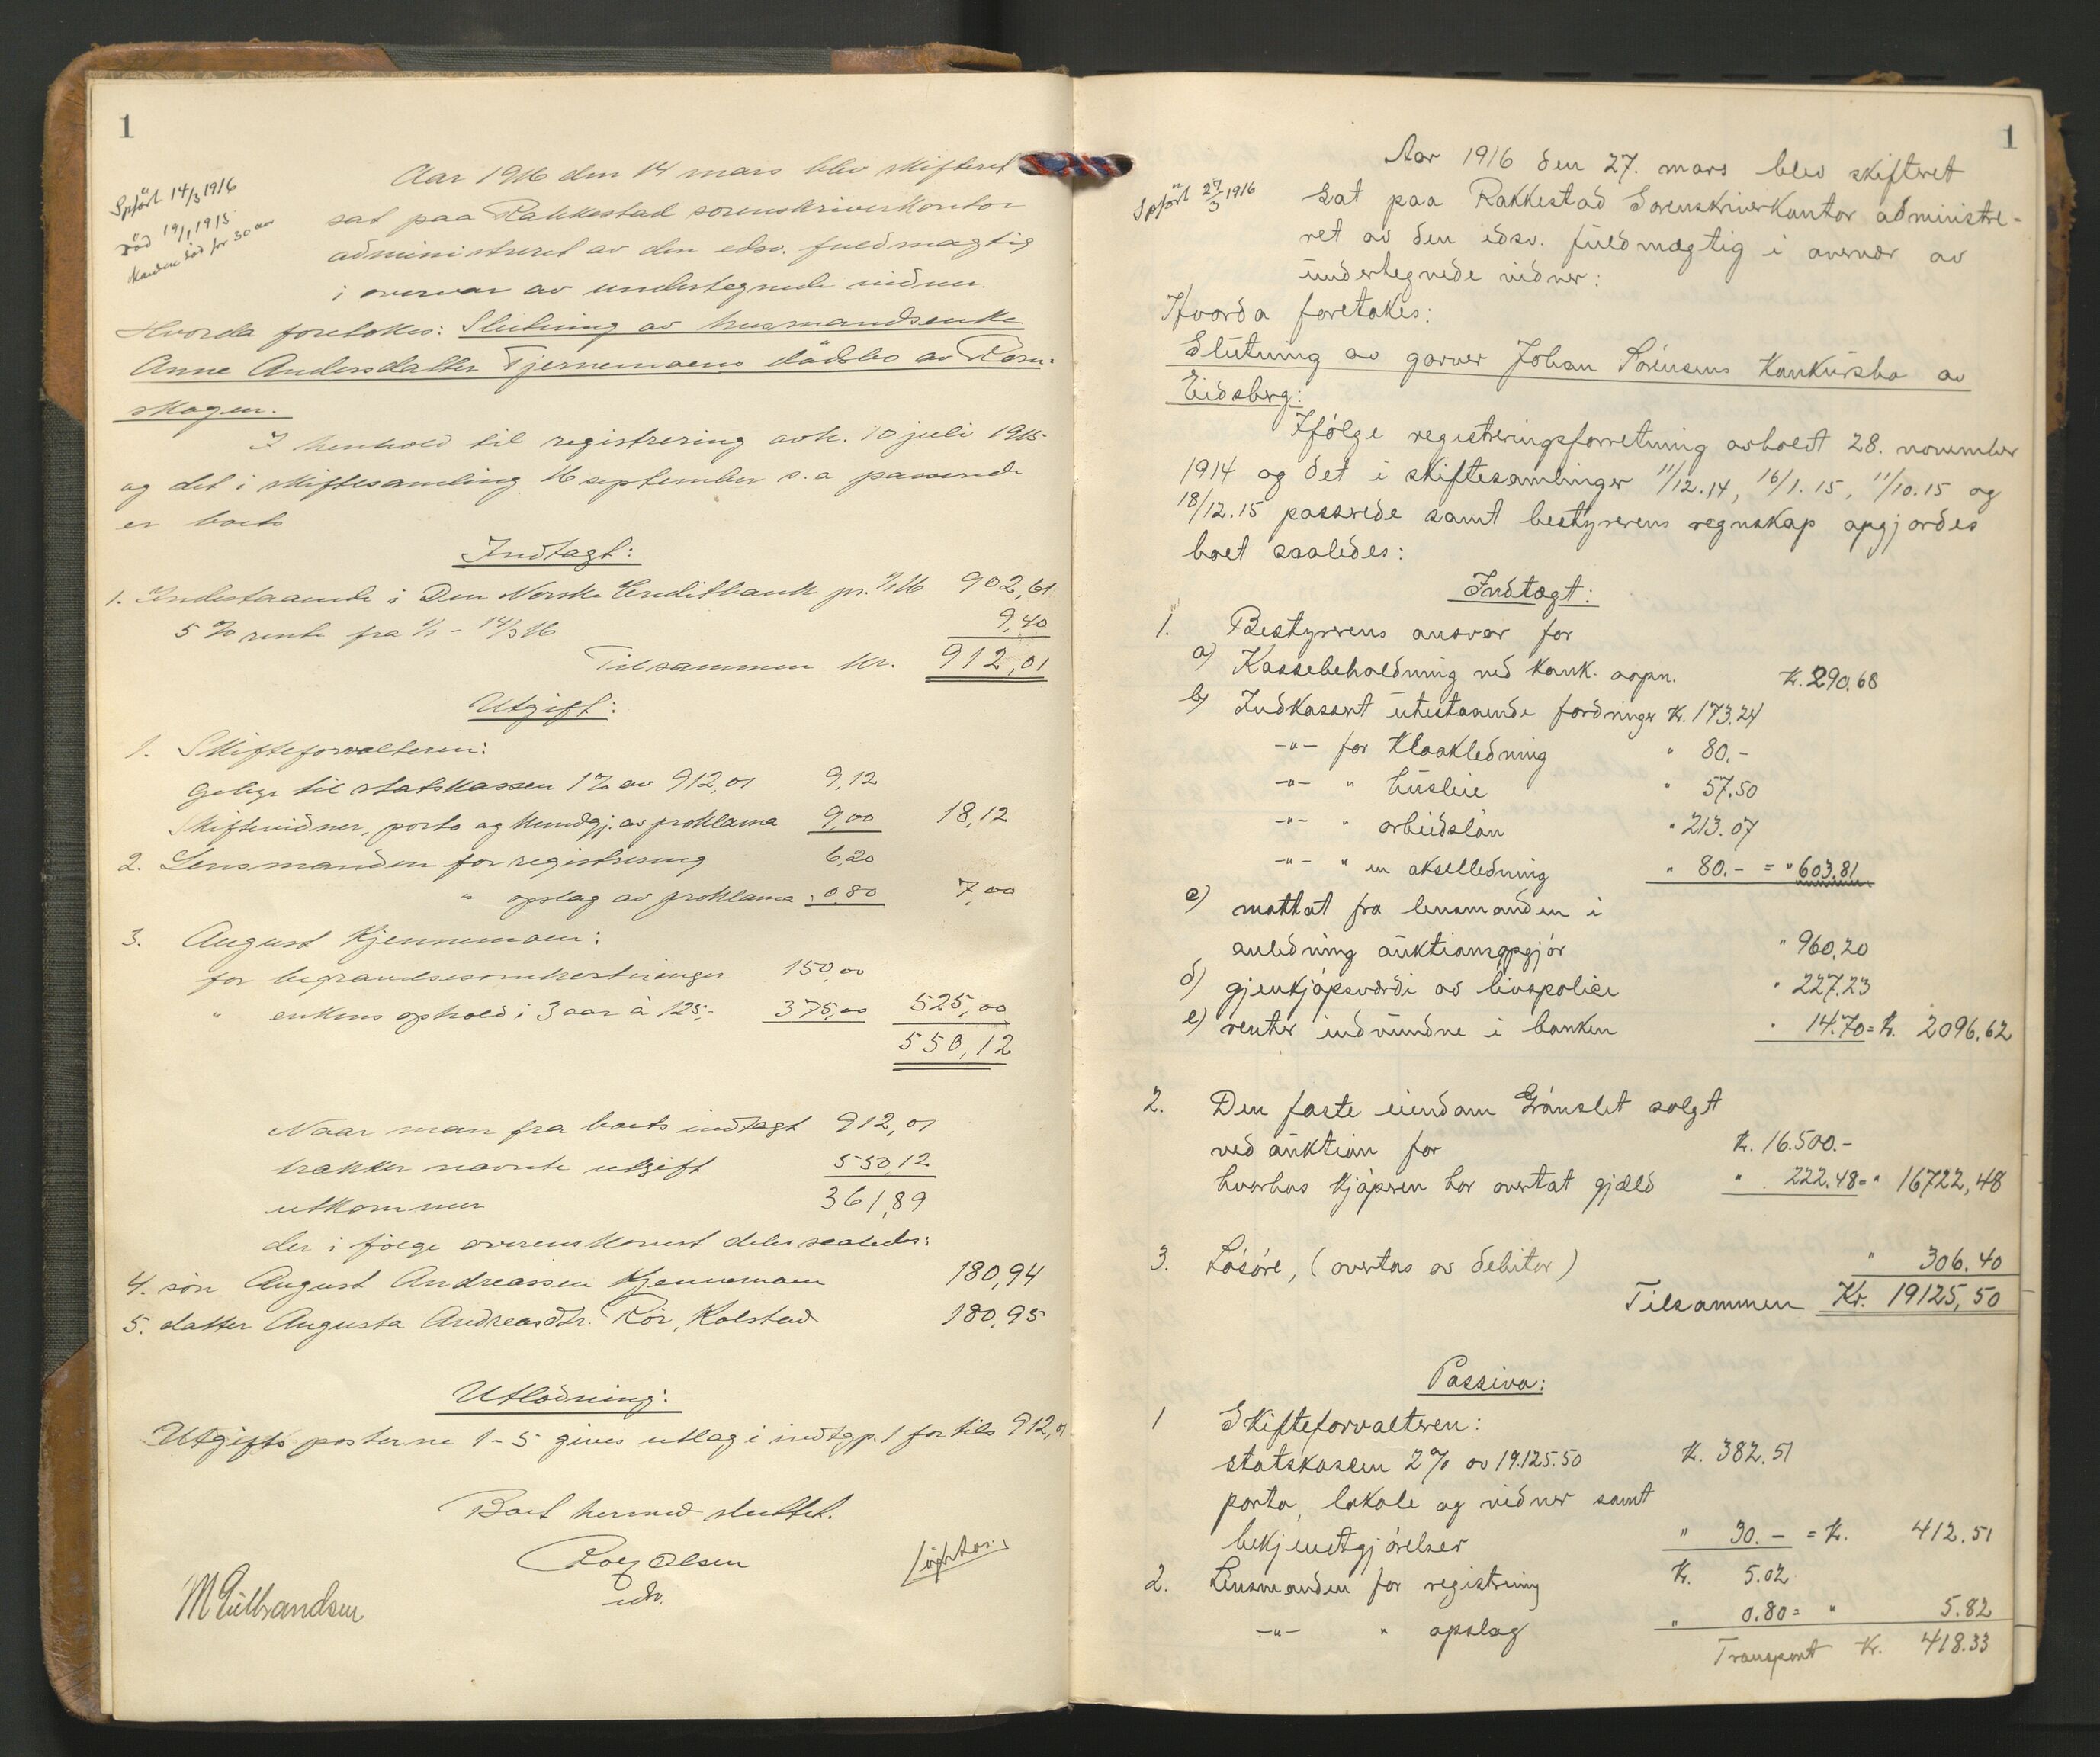 1
Opført 14/3 1916
Død 19/1 1915
Manden død for 30 aar
Aar 1916 den 14 mars blev skifteret
sat paa Rakkestad sorenskriverkontor
administreret av den edsv. fuldmægtig
i overvær av undertegnede vidner.
Hvorda foretokes: Slutning av husmandsenke
Anne Andersdatter Tjernemoens dødsbo av Røm-
skogen.
I henhold til registrering avh. 10 juli 1915
og det i skiftesamling 16 september s. a passerede
er boets
Indtægt:
1. Indestaaende i Den Norske Creditbank pr. 1/1 16 902,61
5 % rente fra 1/1 - 14/3 16 9,40
Tilsammen kr. 912,01
Utgift:
1. Skifteforvalteren:
Gebyr til statskassen 1% av 912,01 9,12
Skiftevidner, porto og kundgj. av proklama 9,00 18,12
2. Lensmanden for registrering 6,20
" opslag av proklama 0,80 7,00
3. August Kjennemoen:
for begravelsesomkostninger 150,00
" enkens ophold i 3 aar à 125,- 375,00 525,00
550,12
Naar man fra boets indtægt 912,01
trækker nævnte utgift 550,12
utkommer 361,89
der i følge overenskomst deles saaledes:
4. søn August Andreassen Kjennemoen 180,94
5. datter Augusta Andreasdtr. Rør, Kolstad 180,95
Utlodning:
Utgifts posterne 1-5 gives utlæg i indtgp. 1 for tils 912,01
Boet hermed sluttet.
Rolf Olsen
edv.
M Gulbrandsen
1
Opført 27/3 1916
Aar 1916 den 27. mars blev skifteret
sat paa Rakkestad Sorenskriverkontor administre-
ret av den edsv. fuldmægtig i overvær av
undertegnede vidner:
Hvorda foretokes:
Slutning av garver Johan Sørensens Konkursbo av
Eidsberg:
Ifølge registreringsforretning avholdt 28. november
1914 og det i skiftesamlinger 11/12.14, 16/1. 15, 11/10.15 og
18/12.15 passerede samt bestyrerens regnskap opgjordes
boet saaledes:
Indtægt:
1. Bestyrerens ansvar for
a) Kassebeholdning ved konk. aapn. Kr. 290.68
b) Indkassert utestaaende fordringer Kr. 173.24
-"- for Kloakledning " 80.-
-"- " husleie " 57.50
-"- " arbeidsløn " 213.07
-"- " en akselledning " 80.- = " 603.81
c) mottat fra lensmanden i
anledning auktionsopgjør " 960,20
d) gjenkjøpsværdi av livspolise " 227.23
e) renter indvundne i banken " 14.70 = Kr. 2096,62
2. Den faste eiendom Grønslet solgt
ved auktion for Kr. 16.500.-
hvorhos kjøperen har overtat gjæld " 222.48 = " 16722,48
3. Løsøre, (overtas av debitor) " 306.40
Tilsammen Kr. 19125,50
Passiva:
1 Skifteforvalteren:
statskassen 2% av 19.125.50 Kr. 382.51
porto, lokale og vidner samt
bekjendtgjørelser " 30.- = Kr. 412.51
2. Lensmanden for registrering Kr. 5.02
-"- " opslag " 0.80 = " 5.82
Transport Kr. 418.33